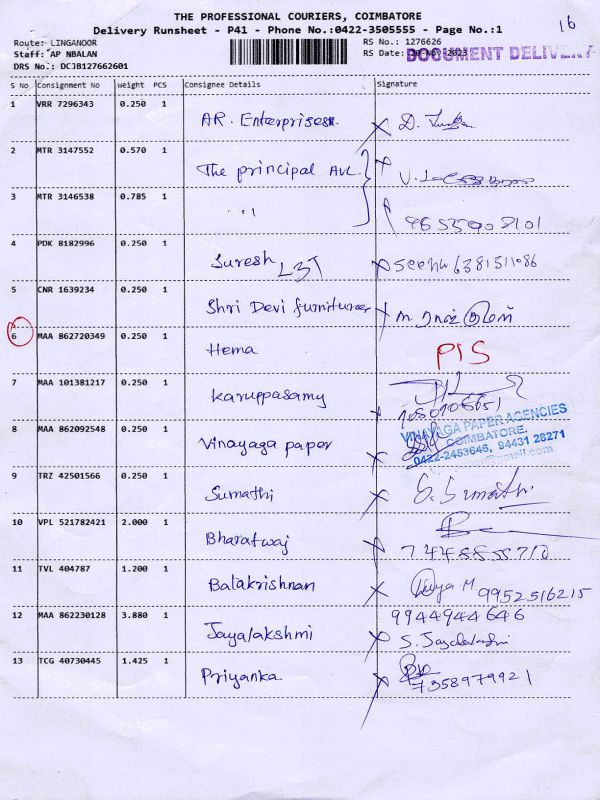 THE PROFESSIONAL COURIERS, COIMBATORE
16
Delivery Runsheet - P41 - Phone No.:0422-3505555 - Page No.:1
Route: LINGANOOR
RS No.: 1276626
Staff: AP NBALAN
RS Date: 20-Nov-2023
DOCUMENT DELIVERY
DRS No.: DCJB127662601
S No Consignment No Weight PCS Consignee Details Signature
1 VRR 7296343 0.250 1 AR. Enterprises. X D.
2 MTR 3147552 0.570 1 The principal AVL. X
3 MTR 3146538 0.785 1 " 9655908101
4 PDK 8182996 0.250 1 Suresh LBT X seenu 6381511086
5 CNR 1639234 0.250 1 Shri Devi furniture X
6 MAA 862720349 0.250 1 Hema PIS
7 MAA 101381217 0.250 1 Karuppasamy X
8 MAA 862092548 0.250 1 Vinayaga paper X
VINAYAGA PAPER AGENCIES
COIMBATORE.
0422-2453646, 94431 28271
9 TRZ 42501566 0.250 1 Sumathi X S. Sumathi
10 VPL 521782421 2.000 1 Bharatwaj
11 TVL 404787 1.200 1 Balakrishnan X Divya M 9952516215
12 MAA 862230128 3.880 1 Jayalakshmi X 9944944646
S. Jayalakshmi
13 TCG 40730445 1.425 1 Priyanka X 7358979921